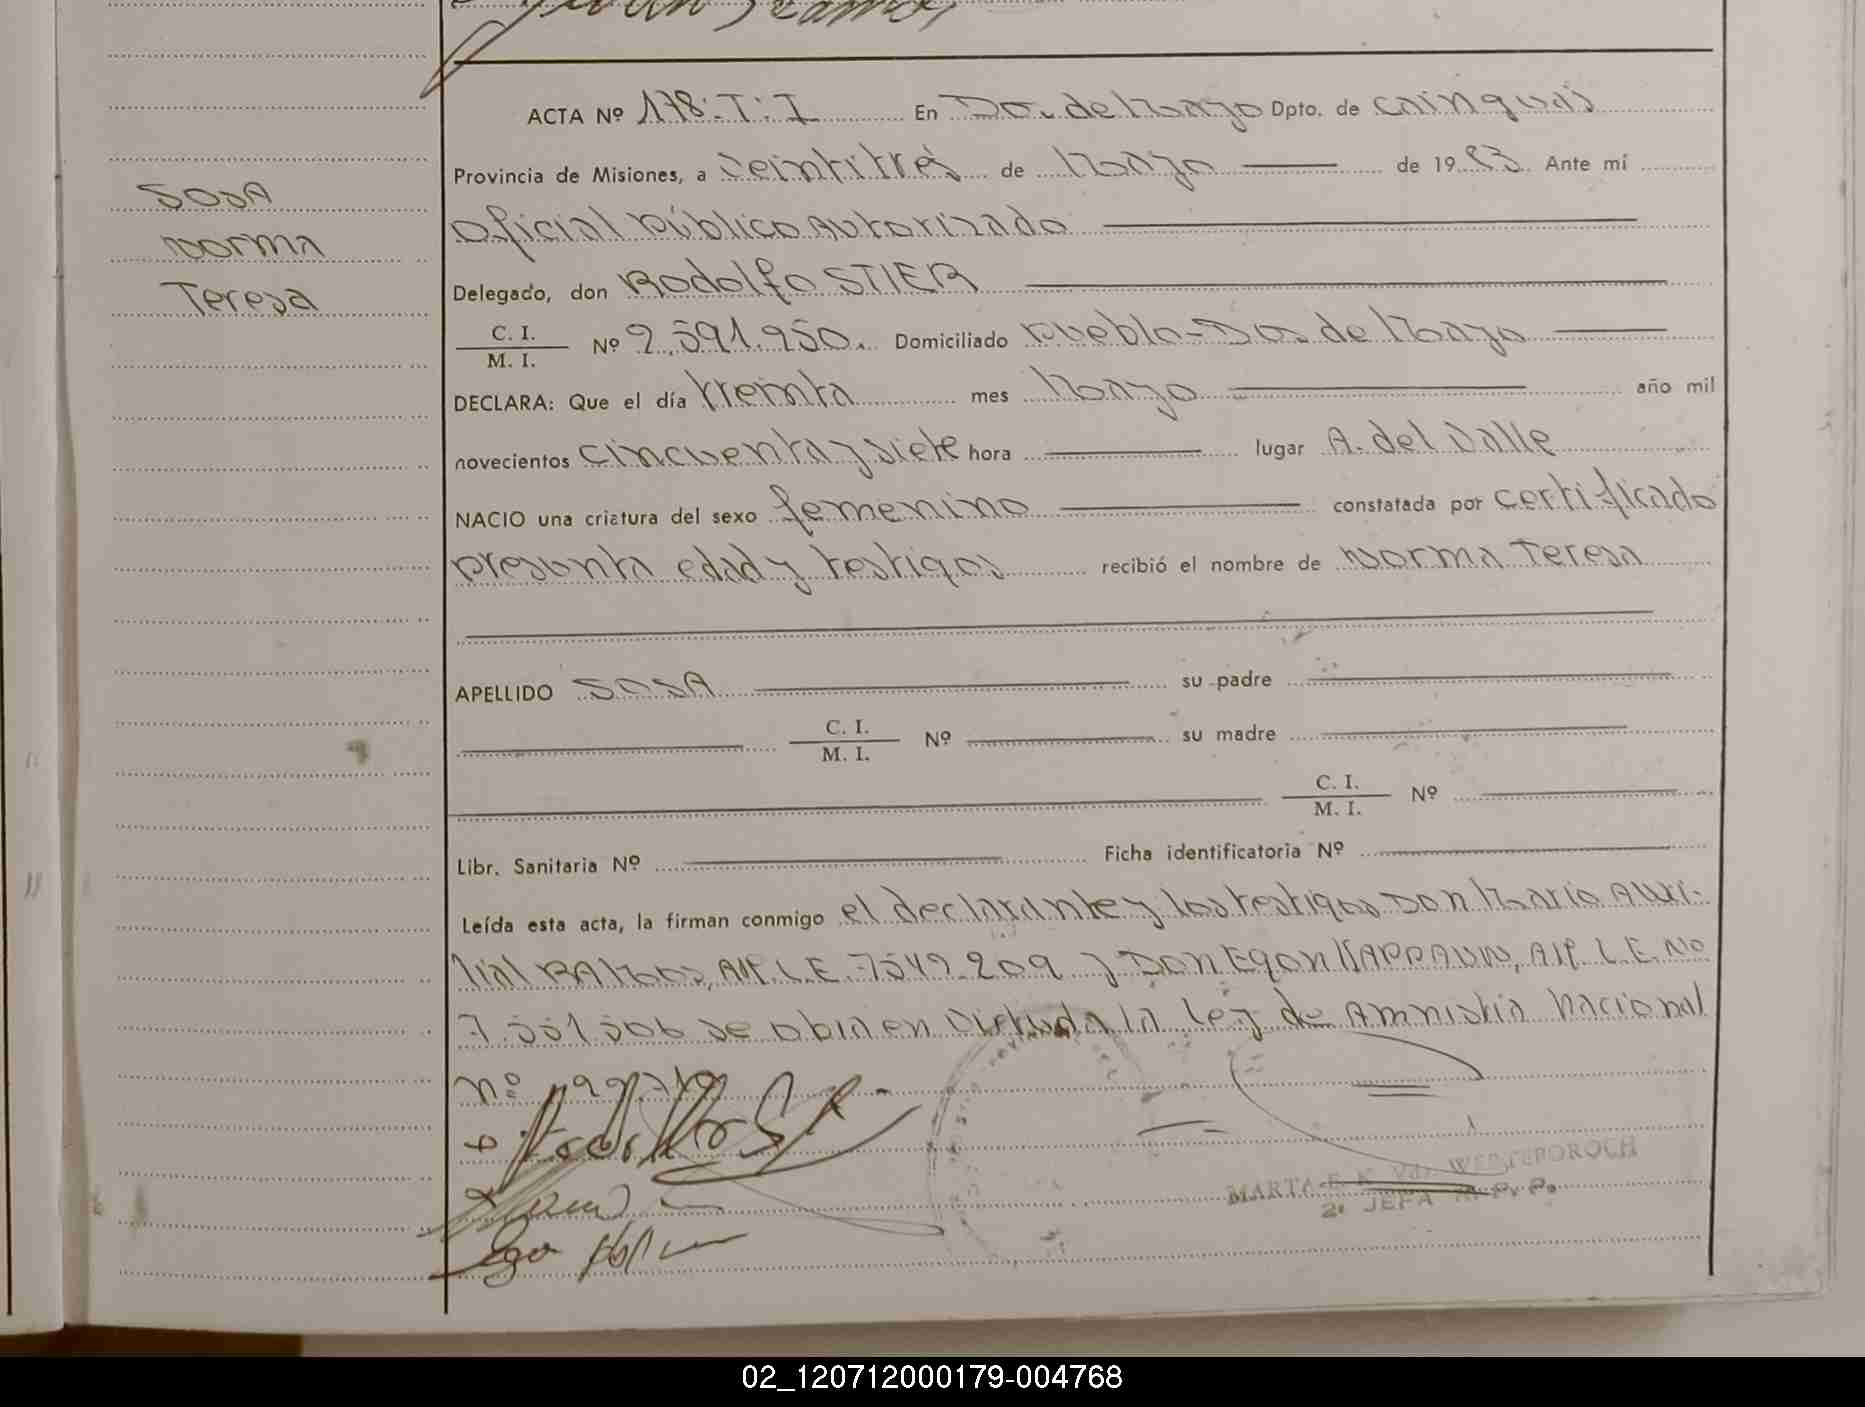 ACTA Nº 178. T: I En Do. de Mayo Dpto. de Cainguás
Provincia de Misiones, a veintitrés de Mayo de 1983. Ante mí
SOSA
Oficial Público Autorizado
Norma
Teresa
Delegado, don Rodolfo STIER
C. I.
M. I.
Nº 2.591.950. Domiciliado Pueblo-Do. de Mayo
DECLARA: Que el día treinta mes Mayo año mil
novecientos cincuenta y siete hora lugar A. del Valle
NACIO una criatura del sexo femenino constatada por certificado
presunta edad y testigos recibió el nombre de Norma Teresa
APELLIDO SOSA su padre
C. I.
M. I.
Nº su madre
C. I.
M. I.
Nº
Libr. Sanitaria Nº Ficha identificatoria Nº
Leída esta acta, la firman conmigo el declarante y los testigos Don Mario
RAMOS, L.E. y Don Egon L.E. No
7.551.506 se obra en virtud a la Ley de Amnistia Nacional
nº
MARTA
2º JEFA R. P. P.
02_120712000179-004768